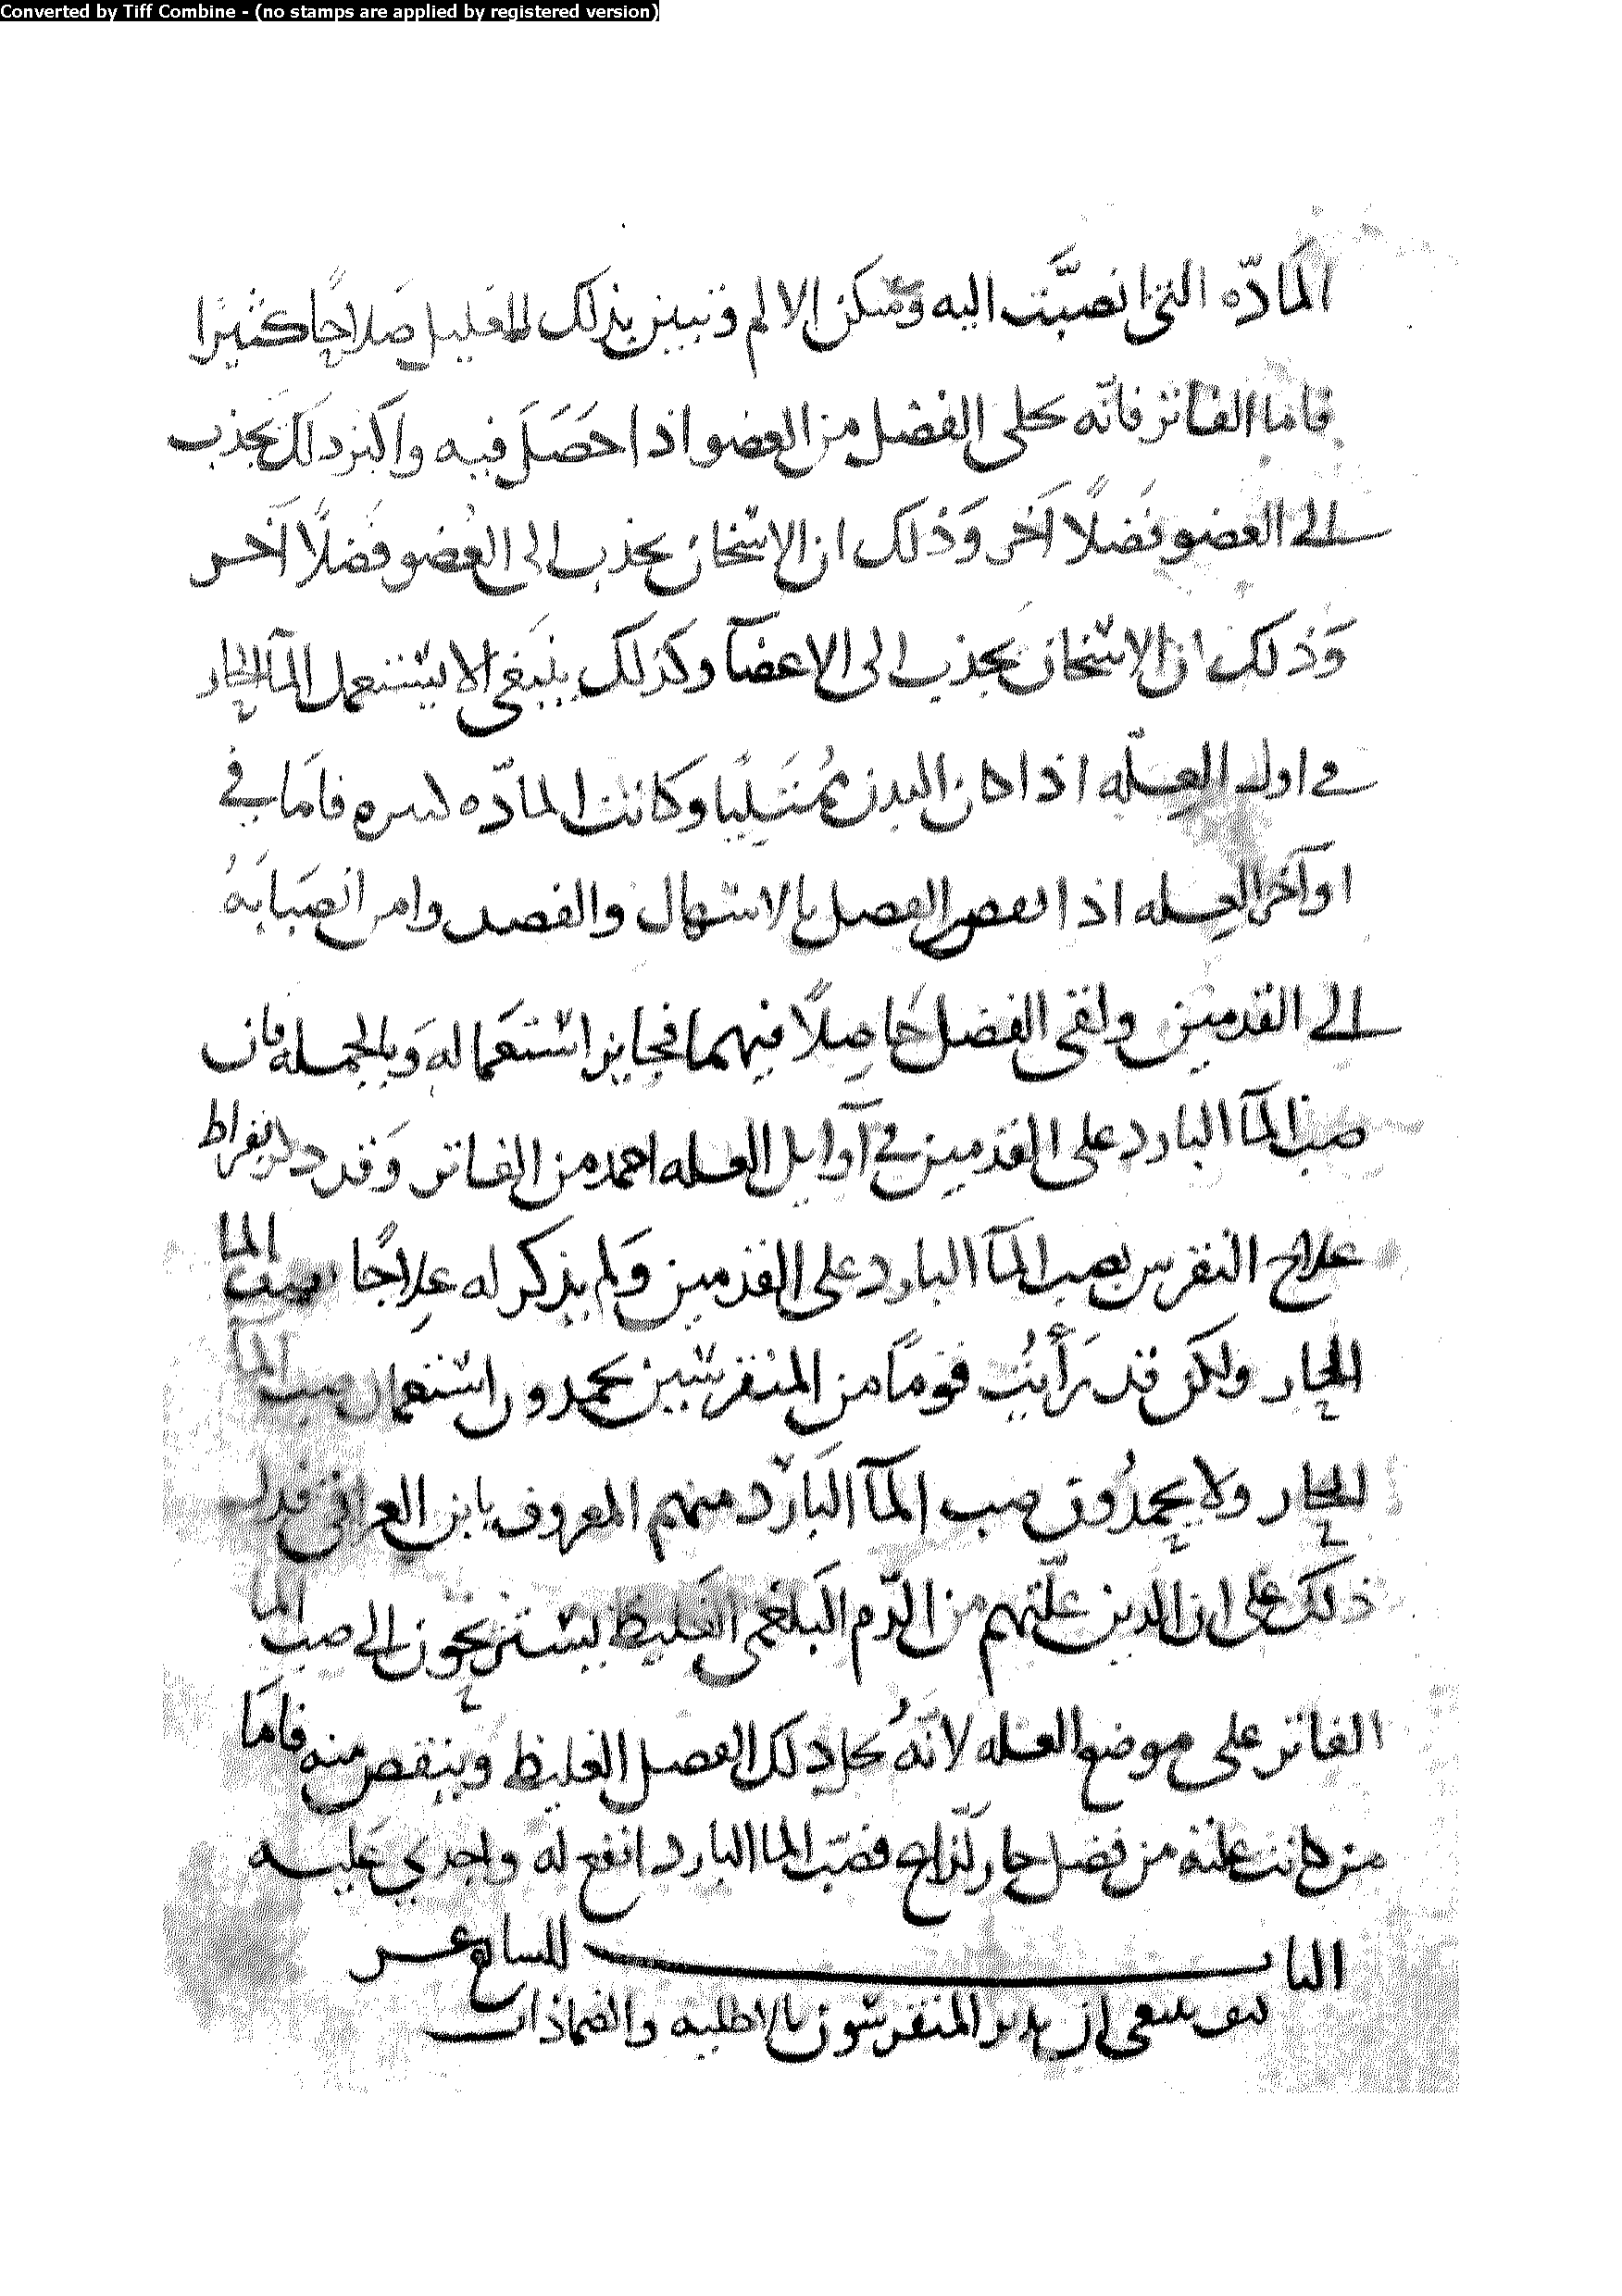 Converted by Tiff Combine - (no stamps are applied by registered version)
المَادّه التى انصبَّت اليه وتسكن الالم وتبين بذلك للعليل صَلاحًا كثيرًا
فاما الفاتر فانّه يحلى الفضل من العضو اذا حَصَلَ فيه واكثر ذلك يجذب
الى العضو فضلًا آخر وَذلك ان الاسْخان يجذب الى العُضو فَضلًا آخر
وَذلك ان الاسْخان يجذب الى الاعضآ وكذلك ينبَغى الا يسْتعمل المآ الحار
فى اول العلّه اذا كان البدن مُمتَليًا وكانت المادّه فامَا فى
اوآخر العله اذا الفضل بالاسْهال والفصد وامن انصِبَابَهُ
الى القدمين ولقى الفضل حَاصِلًا فيهما فجايز اسْتعمَاله وَبالجمله فان
صب المآ البارد على القدمين فى آوايل العله احمد من الفاتر وَقد ابقراط
علاج النقرس بصب المآ البارد على القدمين وَلم يذكر له عِلاجًا بصب الما
الحار ولكن قد رَأيتُ قومًا من المنقرسْين يحمدون اسْتعمال صب المآ
الحار ولا يحمدُون صب المآ البَارّد منهم المعروف بابن العراقى فدل
ذلك على ان الذين علّتهم من الدّم البَلغمى الغَليظ يسْتريحون الى صب الما
الفاتر على موضع العله لانّهُ يحلل ذلك الفضل الغليظ وَينقص منه فامَا
من كانت علته من فضل حار لذّاع فصَب الما البارد انفع له واجدى عَليه
الباب السابع عشر
كيف ينبغى ان يدبر المنقرسْون بالاطليه والضماذات